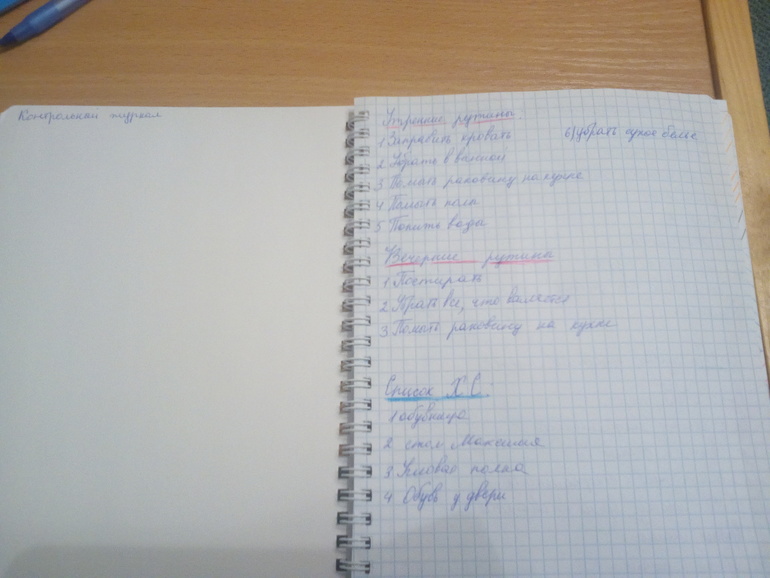 Контрольный журнал
Утренние рутины
1 Заправить кровать
6) убрать сухое белье
2 Убрать в ванной
3 Помыть раковину на кухне
4 Помыть полы
5 Попить воды
Вечерние рутины
1 Постирать
2 Убрать все, что валяется
3 Помыть раковину на кухне
Список Х.С.
1 обувница
2 стол Максима
3 полка
4 Обувь у двери